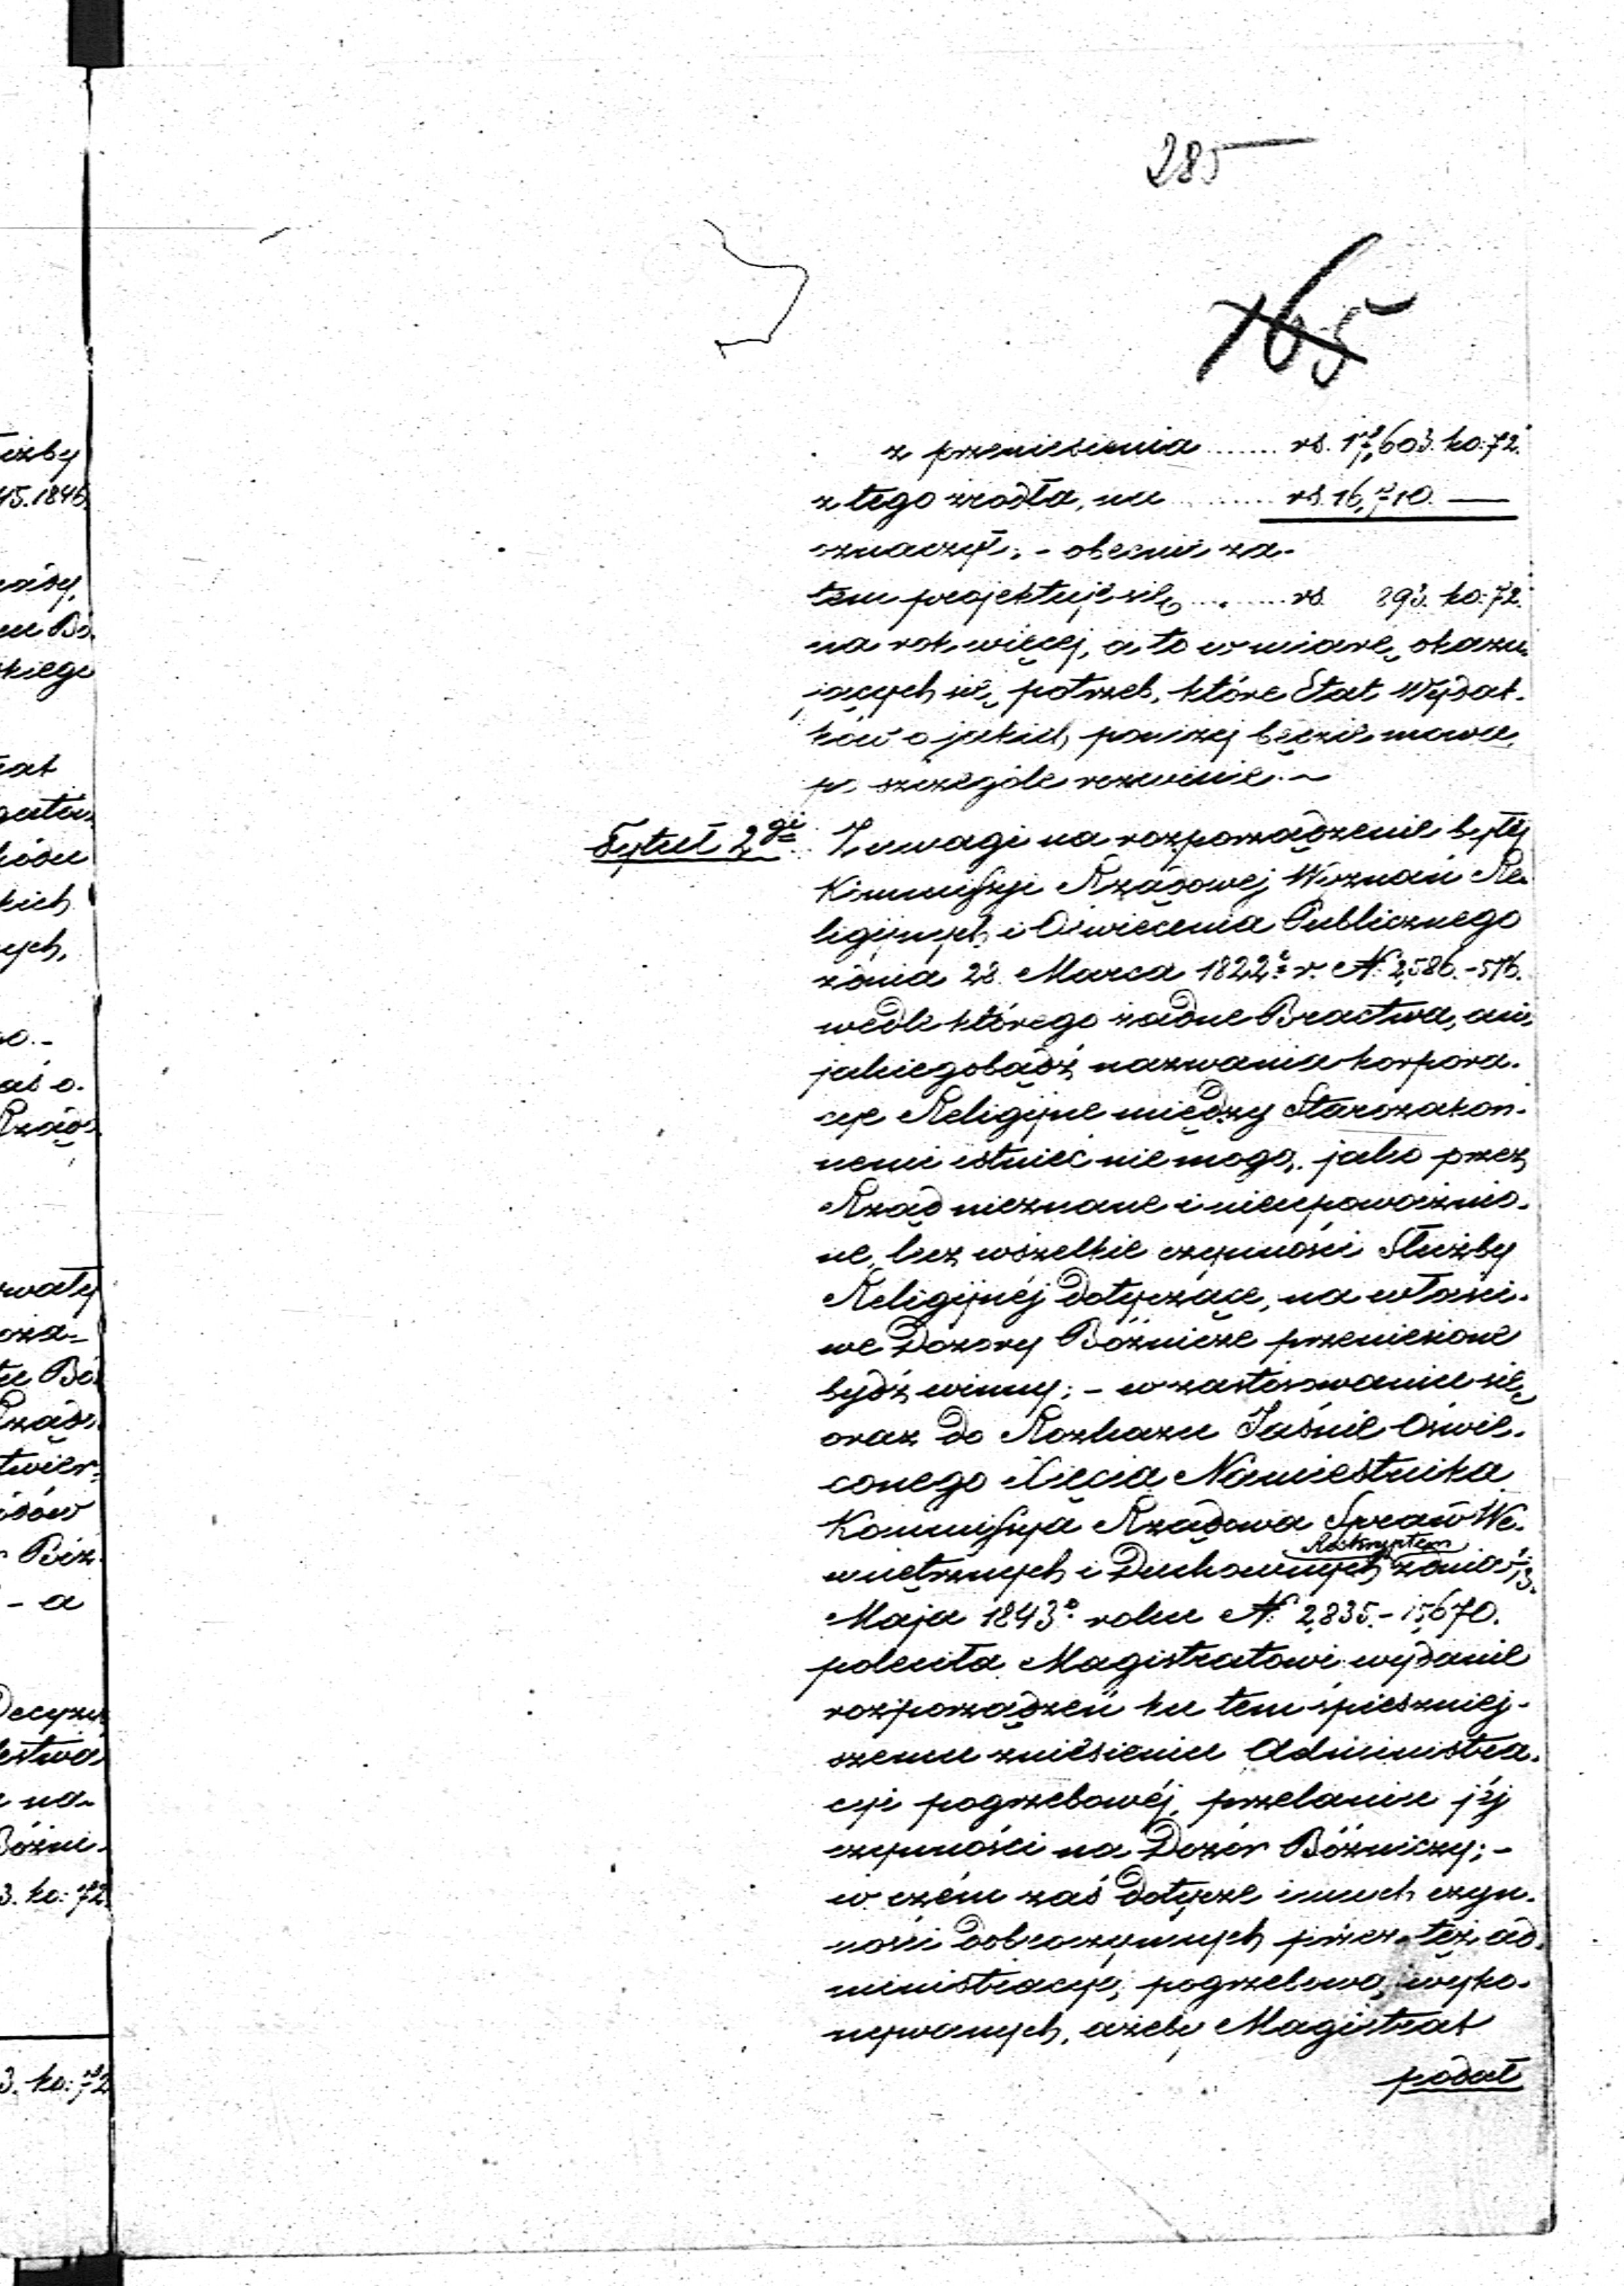 285
165
z przeniesienia ....... rs. 17,603. ko: 72.
z tego źrodła, na ......... rs. 16,710. —
oznaczył; - obecnie za-
tem projektuje się ......... rs. 893. ko: 72.
na rok więcej, a to w miarę okazu-
jących się potrzeb, które Etat Wydat-
ków o jakich poniżej będzie mowa,
w szczególe rozwinie. ~
Tytuł 2gi Z uwagi na rozporządzenie byłéj
Kommissyi Rządowej Wyznań Re-
ligijnych i Oświecenia Publicznego
z dnia 28. Marca 1822o r. N. 2,586.-516.
wedle którego żadne Bractwa, ani
jakiegobądź nazwania korpora-
cye Religijne między Starozakon-
nemi istnieć nie mogą, jako przez
Rząd nieznane i nieupoważnio-
ne, lecz wszelkie czynności Służby
Religijnéj dotyczące, na właści-
we Dozory Bóżnicze przeniesione
bydź winny; - w zastosowaniu się
oraz do Rozkazu Jaśnie Oświe-
conego Xięcia Namiestnika
Kommissya Rządowa Spraw We-
Reskryptem
wnętrznych i Duchownych z dnia 1/13.
Maja 1843o roku N. 2,835.-15,670.
poleciła Magistratowi wydanie
rozporządzeń ku tem śpieszniej-
szemu zniesieniu Administra-
cyi pogrzebowéj, przelaniu jéj
czynności na Dozór Bóżniczy; -
w czém zaś dotycze innych czyn-
ności dobroczynnych przez tęż ad-
ministracyę pogrzebową wyko-
nywanych, ażeby Magistrat
podał
iżby
45.1846.
kiego
at
kich
ych,
Rząd
wały
Bó
twier-
- a
Decyzy
estwa
na-
Bóżni-
3. ko: 72.
3. ko: 72